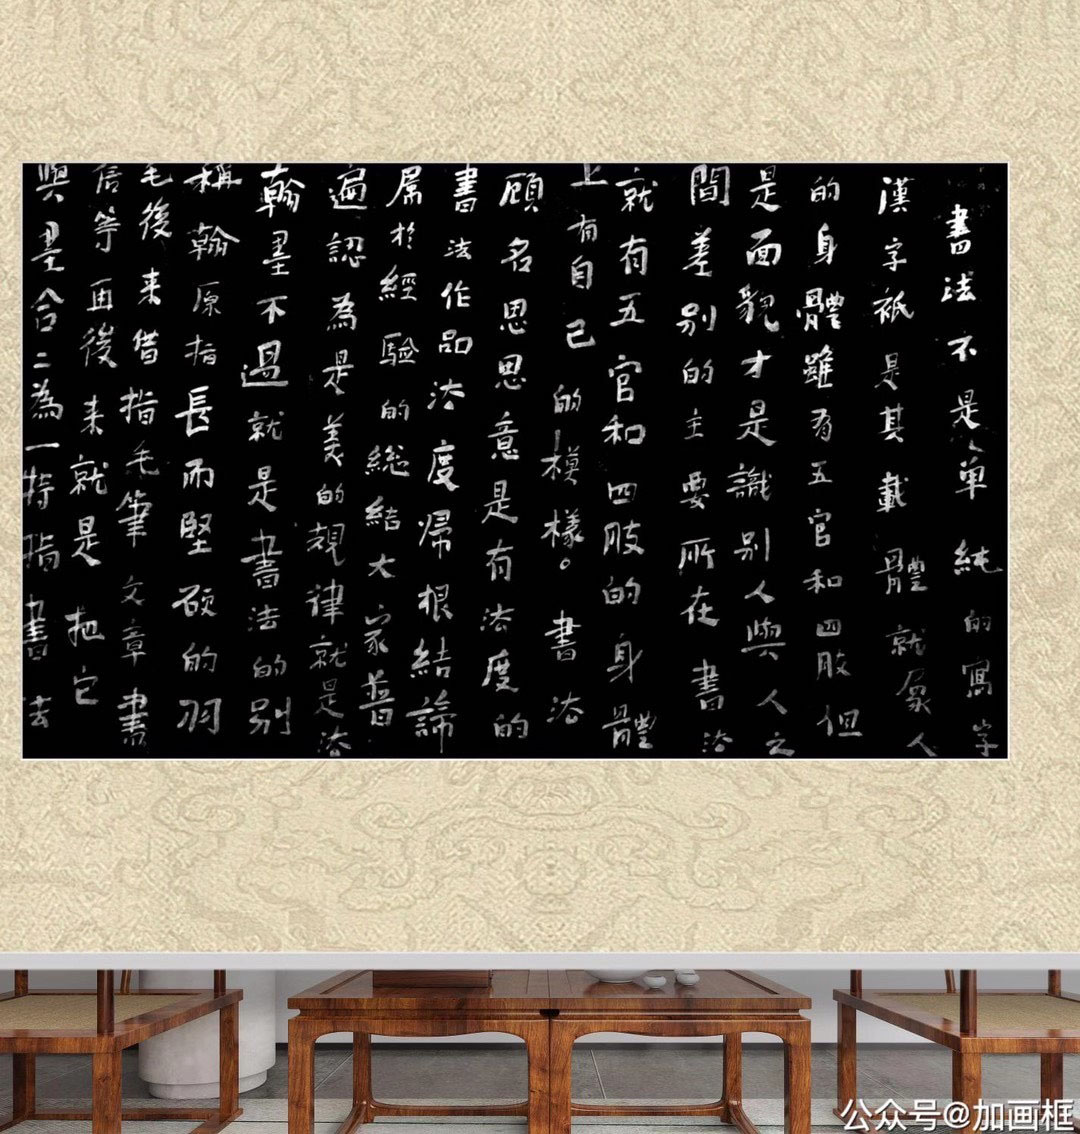 書法不是單純的寫字
漢字祇是其載體就象人
的身體雖有五官和四肢但
是面貌才是識別人與人之
間差别的主要所在書法
就有五官和四肢的身體
上有自己的模樣。書法
顾名思思意是有法度的
書法作品法度帰根結諦
属於經驗的総結大家普
遍認為是美的規律就是法
翰墨不過就是書法的别
稱翰原指長而堅硕的羽
毛後來借指毛筆文章書
信等再後来就是把它
與墨合二為一特指書法
公众号@加画框